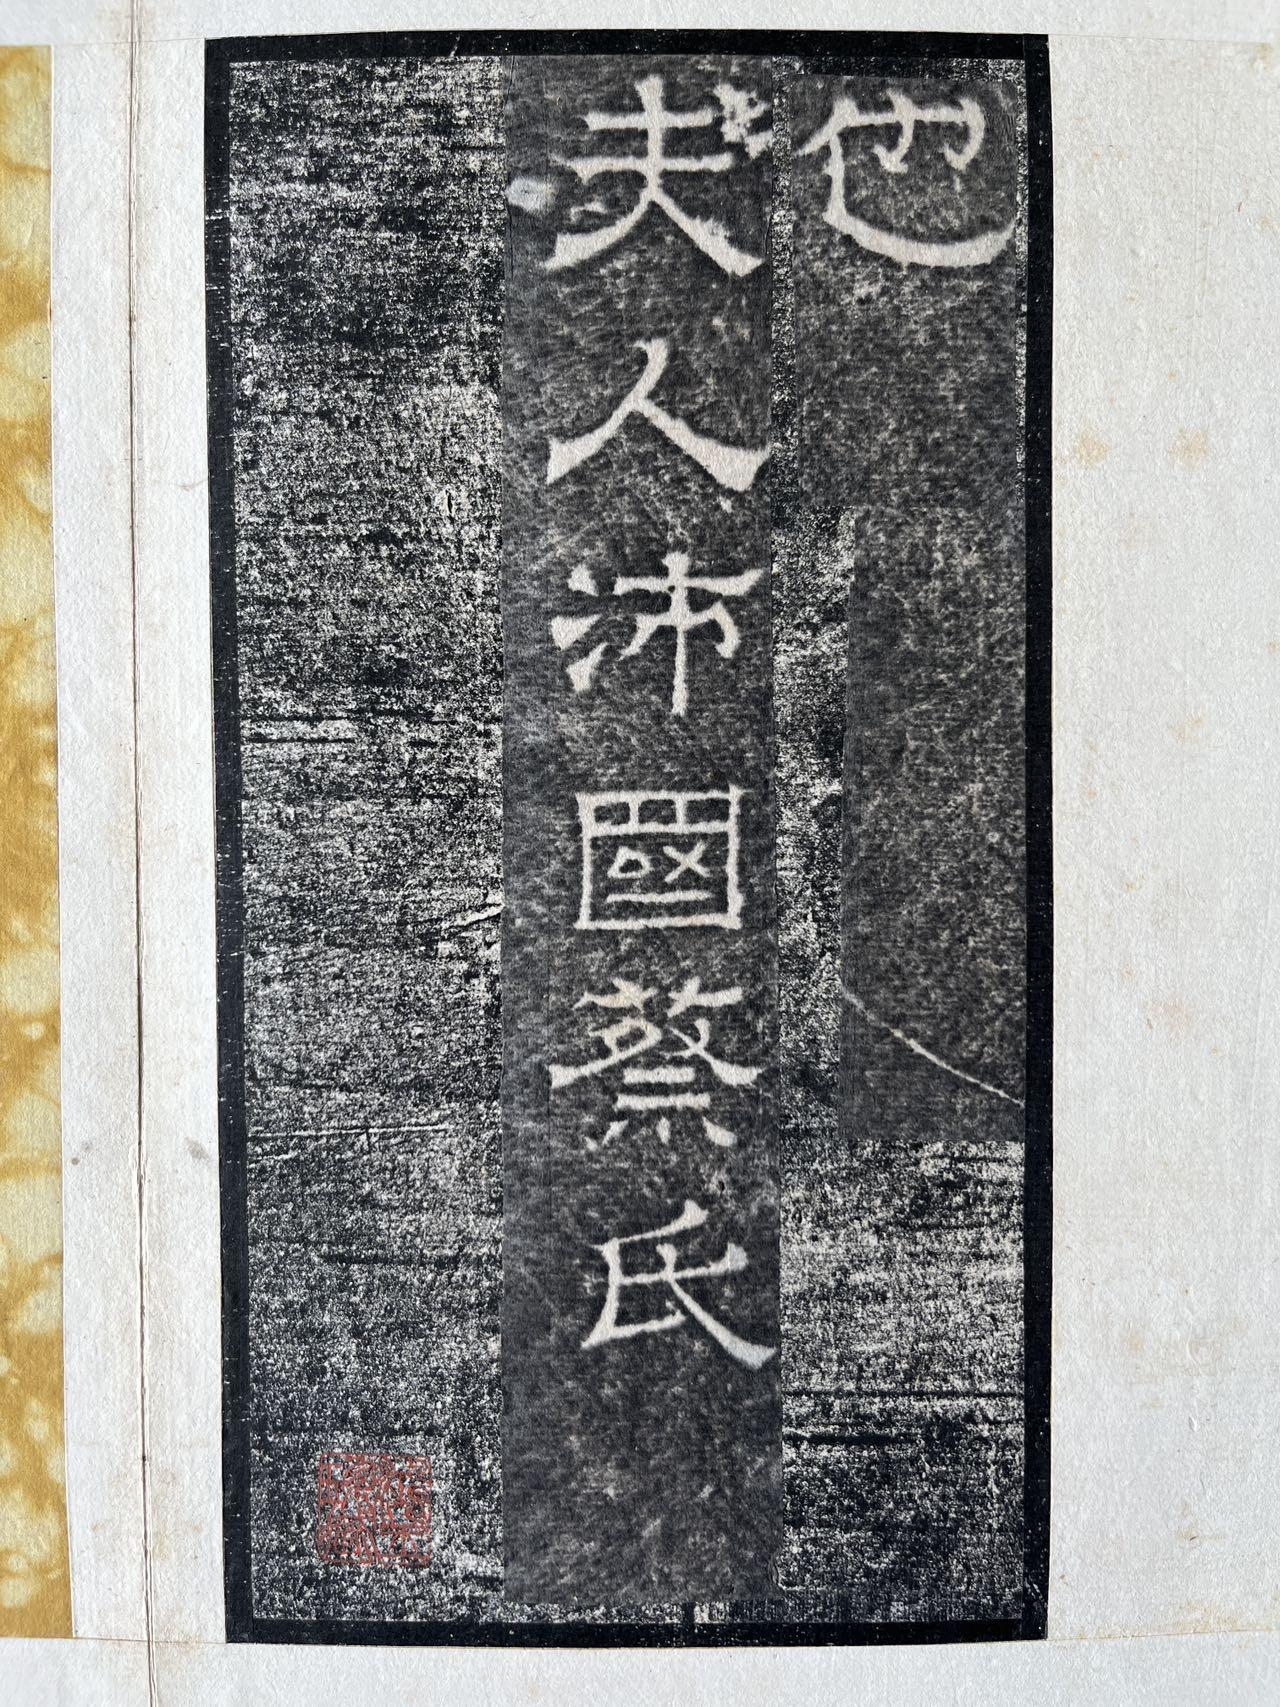 也
夫人沛國蔡氏